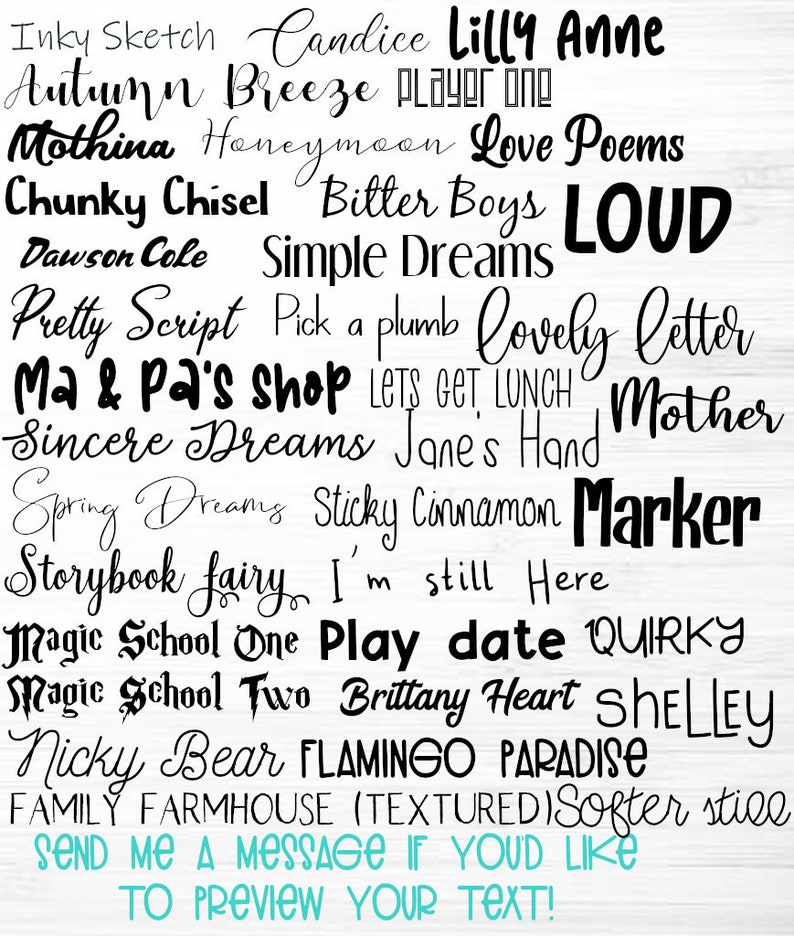 Inky Sketch Candice Lilly Anne
Autumn Breeze PLAYER ONE
Mothina Honeymoon Love Poems
Chunky Chisel Bitter Boys LOUD
Dawson Cole Simple Dreams
Pretty Script Pick a plumb Lovely Letter
Ma & Pa's shop LETS GET LUNCH Mother
Sincere Dreams Jane's Hand
Spring Dreams Sticky Cinnamon Marker
Storybook fairy I'm still Here
Magic School One Play date QUIRKY
Magic School Two Brittany Heart SHELLEY
Nicky Bear FLAMINGO PARADISE
FAMILY FARMHOUSE (TEXTURED) Softer still
SEND ME A MESSAGE IF YOU'D LIKE
TO PREVIEW YOUR TEXT!